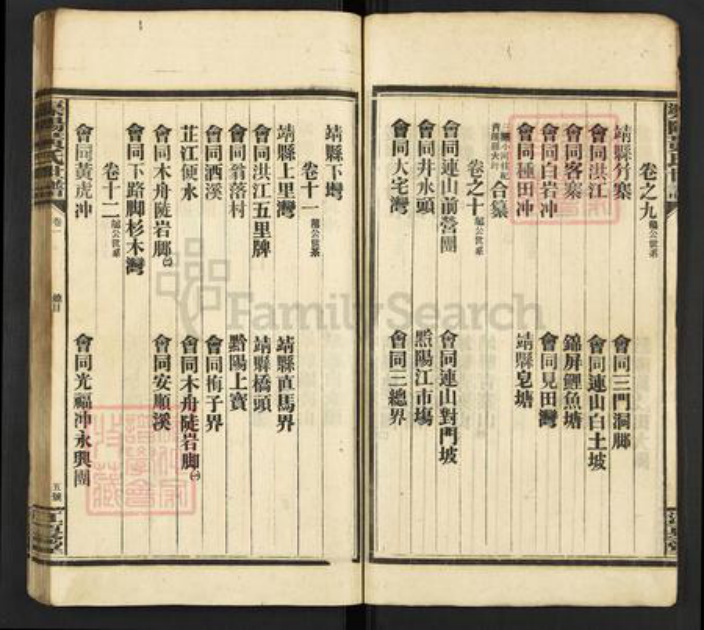 卷之九
靖縣竹寨
會同三門洞腳
會同洪江
會同連山白土坡
會同客寨
錦屏鯉魚塘
會同白岩冲
會同見田灣
會同種田冲
靖縣皂塘
合纂
卷之十
會同連山前營團
會同連山對門坡
會同井水頭
黔陽江市塲
會同大宅灣
會同三總界
靖縣下灣
卷十一
靖縣上里灣
靖縣直馬界
會同洪江五里牌
靖縣橋頭
會同翁落村
黔陽上寶
會同酒溪
會同栯子界
芷江便水
會同木舟陡岩腳㈠
會同木舟陡岩腳㈡
會同安順溪
會同下路腳杉木灣
卷十二
會同黃虎冲
會同光福冲永興團
卷一
總目
五號
FamilySearch